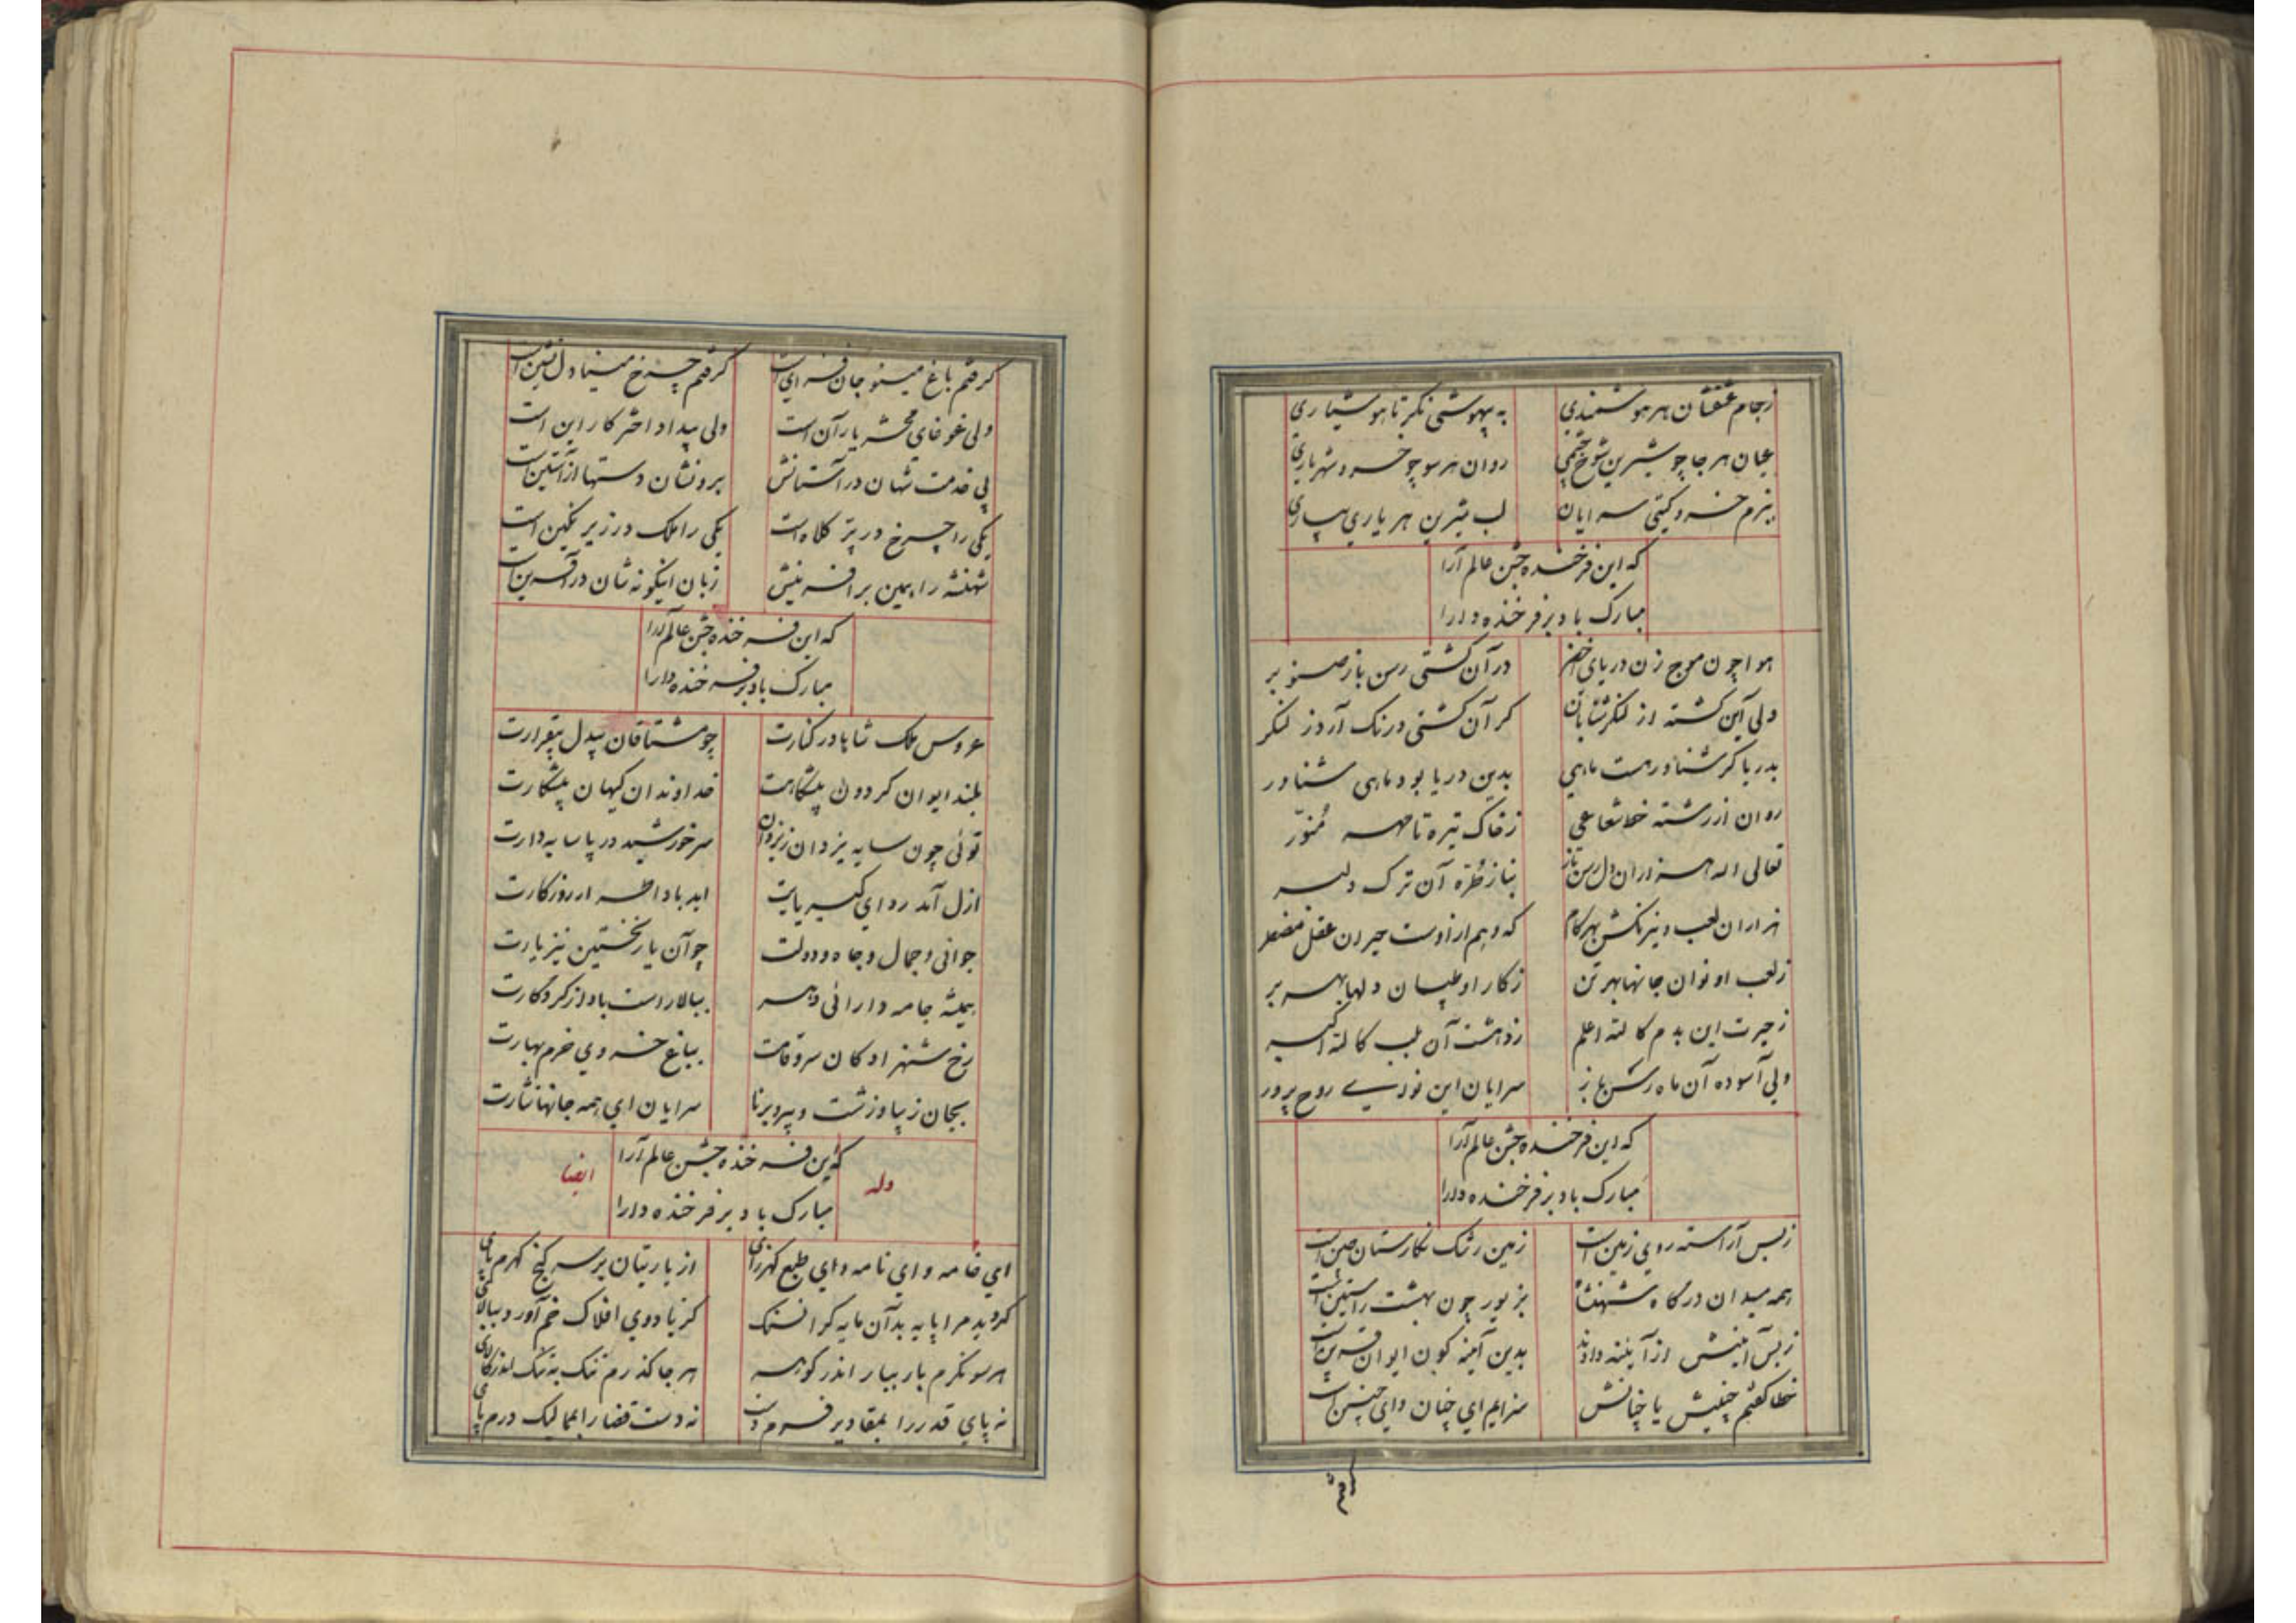 زجام عشقشان هر هوشمندی به بیهوشی نکر تا هوشیاری
عیان هر جا چو شیرین شوخ چشمی روان هر سو چو خسرو شهریاری
ببزم خسرو کیتی سرایان لب شیرین هر یاری بیاری
که این فرخنده جشن عالم آرا
مبارک باد بر فرخنده دارا
هوا چون موج زن دریای اخضر در آن کشتی رسن باز صنوبر
ولی این کشته از لنکر شتابان کر آن کشتی درنک آرد ز لنکر
بدریا کر شناور هست ماهی بدین دریا بود ماهی شناور
روان از رشته خط شعاعی ز خاک تیره تا مهر منور
تعالی الله هزاران دل رسن باز بناز طره آن ترک دلبر
هزاران لعب و نیرنکش بهر کام که وهم از اوست حیران عقل مضطر
ز لعب او نوان جانها بهر تن ز کار او طپان دلها بهر بر
ز حیرت این بدم کالله اعلم ز دهشت آن بلب کالله اکبر
ولی آسوده آن ماه رسن باز سرایان این نوای روح پرور
که این فرخنده جشن عالم آرا
مبارک باد بر فرخنده دارا
ز بس آراسته روی زمین است زمین رشک نکارستان چین است
همه میدان درکاه شهنشاه بزیور چون بهشت راستین است
ز بس آیینش از آیینه دادند بدین آیینه کون ایوان قرین است
خطا کفتم چنینش یا چنانش سزایم ای چنان و ای چنین است
کرفتم
کرفتم باغ مینو جان فزای است کرفتم چرخ مینا دل نشین است
ولی غوغای محشر یار آن است ولی بیداد اختر کار این است
پی خدمت شهان در آستانش برونشان دستها از آستین است
یکی را چرخ در پر کلاه است یکی را ملک در زیر نکین است
شهنشه را ببین بر آفرینش زبان اینکونه شان در آفرین است
که این فرخنده جشن عالم آرا
مبارک باد بر فرخنده دارا
عروس ملک شاها در کنارت چو مشتاقان بیدل بیقرارت
بلند ایوان کردون پیشکاهت خداوندان کیهان پیشکارت
توئی چون سایه یزدان ز یزدان سر خورشید در پا سایه دارت
ازل آمد ردای کبریایت ابد بادا طراز روزکارت
جوانی و جمال و جاه و دولت چو آن یار نخستین نیز یارت
همیشه جامه دارائی دهر ببالا راست باد از کردکارت
رخ شهزادکان سرو قامت بباغ خسروی خرم بهارت
بجان زیبا و زشت و پیر و برنا سرایان ای همه جانها نثارت
که این فرخنده جشن عالم آرا
مبارک باد بر فرخنده دارا
وله ایضا
ای خامه و ای نامه و ای طبع کهرزای از یاریتان بر سر کنج کهرم پای
کردید مرا پایه بدآن مایه کرانسنک کز پا دوی افلاک خم آورد ببالای
هر سو نکرم بار ببار اندر کوهر هر جا کذرم تنک به تنک اندر کالای
نه پای قدر را بمقادیر فرم دست نه دست قضا را بممالیک درم پای